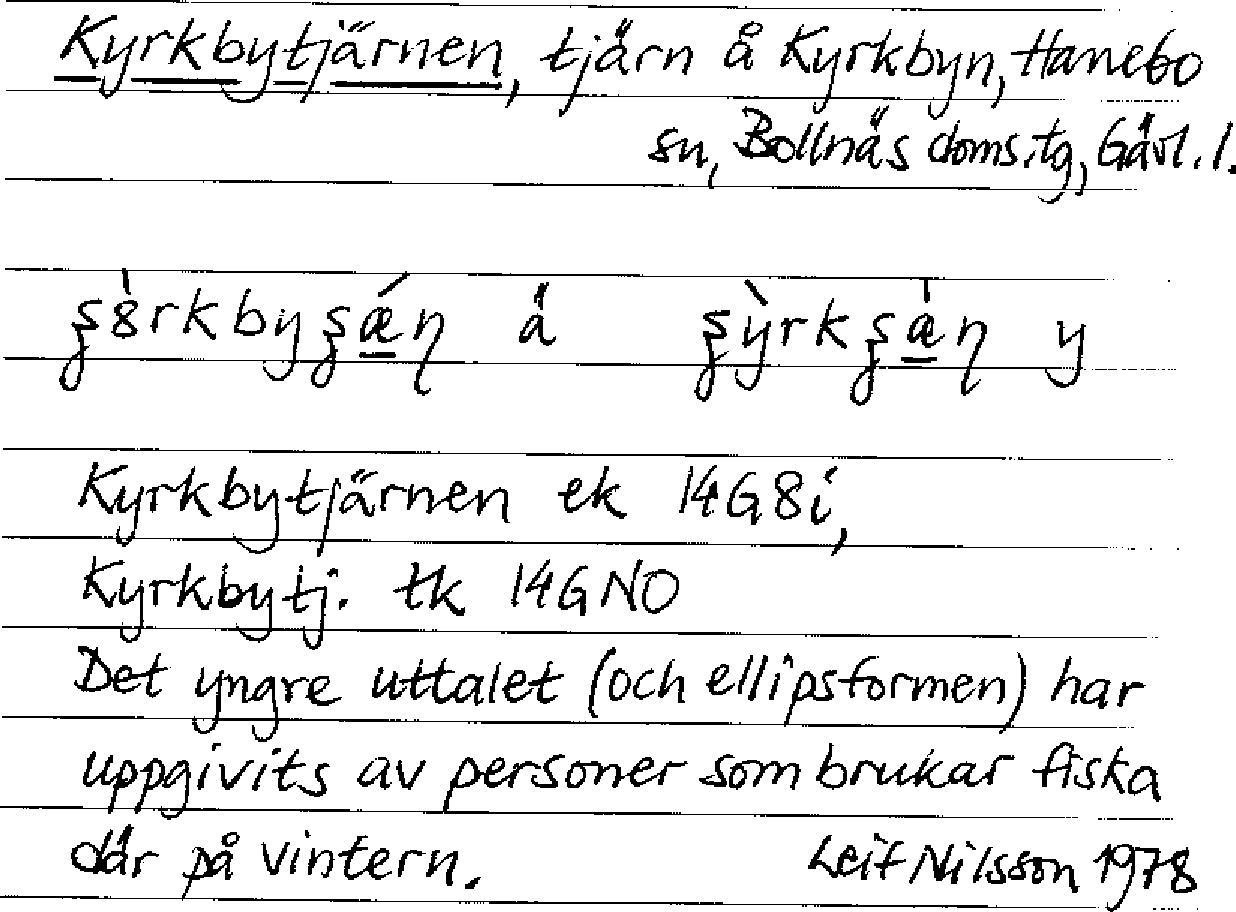 Kyrkbytjärnen, tjärn å Kyrkbyn, Hanebo
sn, Bollnäs doms.tg, Gävl. l.
å y
Kyrkbytjärnen ek 14G8i,
Kyrkbytj. tk 14G NO
Det yngre uttalet (och ellipsformen) har
uppgivits av personer som brukar fiska
där på vintern. Leif Nilsson 1978